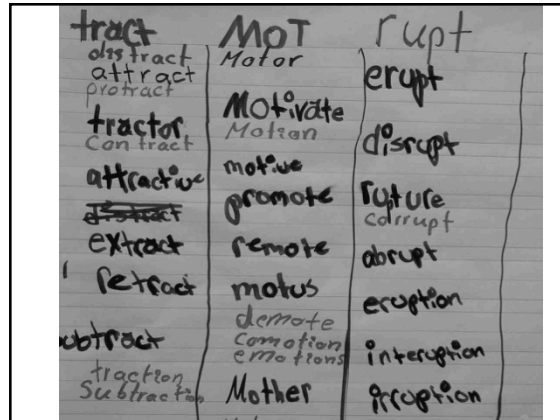 tract
distract
attract
protract
tractor
contract
attractive
distract
extract
retract
subtract
traction
subtraction
MOT
Motor
Motivate
Motion
motive
promote
remote
motus
demote
comotion
emotions
Mother
rupt
erupt
disrupt
rupture
corrupt
abrupt
eruption
interuption
irruption